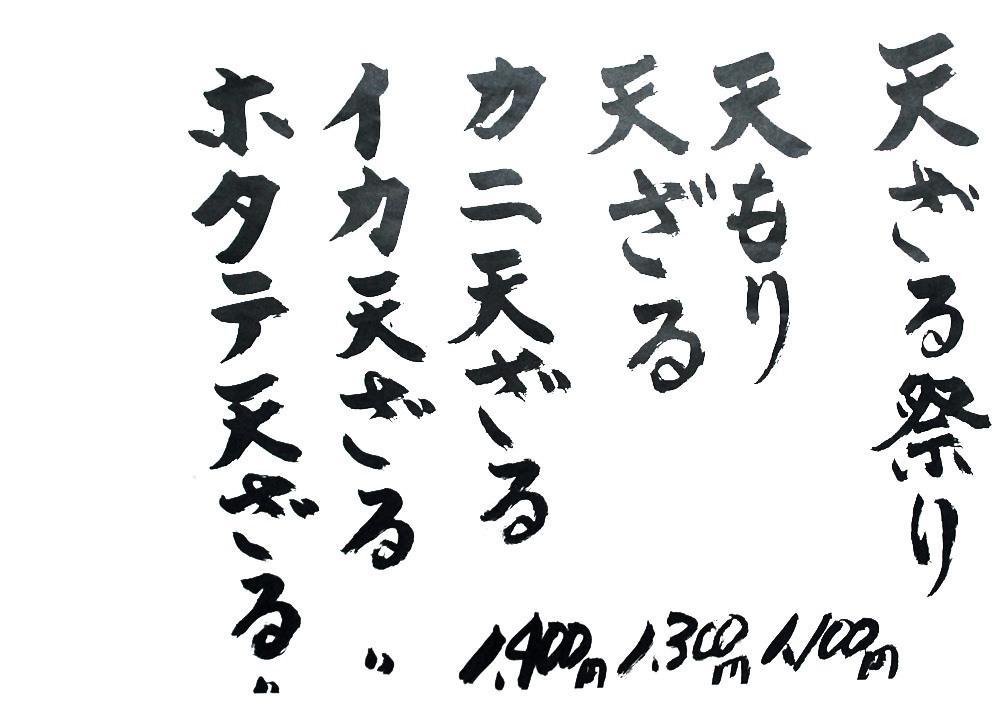 天ざる祭り
天もり 1,100円
天ざる 1,300円
カニ天ざる 1,400円
イカ天ざる 〃
ホタテ天ざる 〃